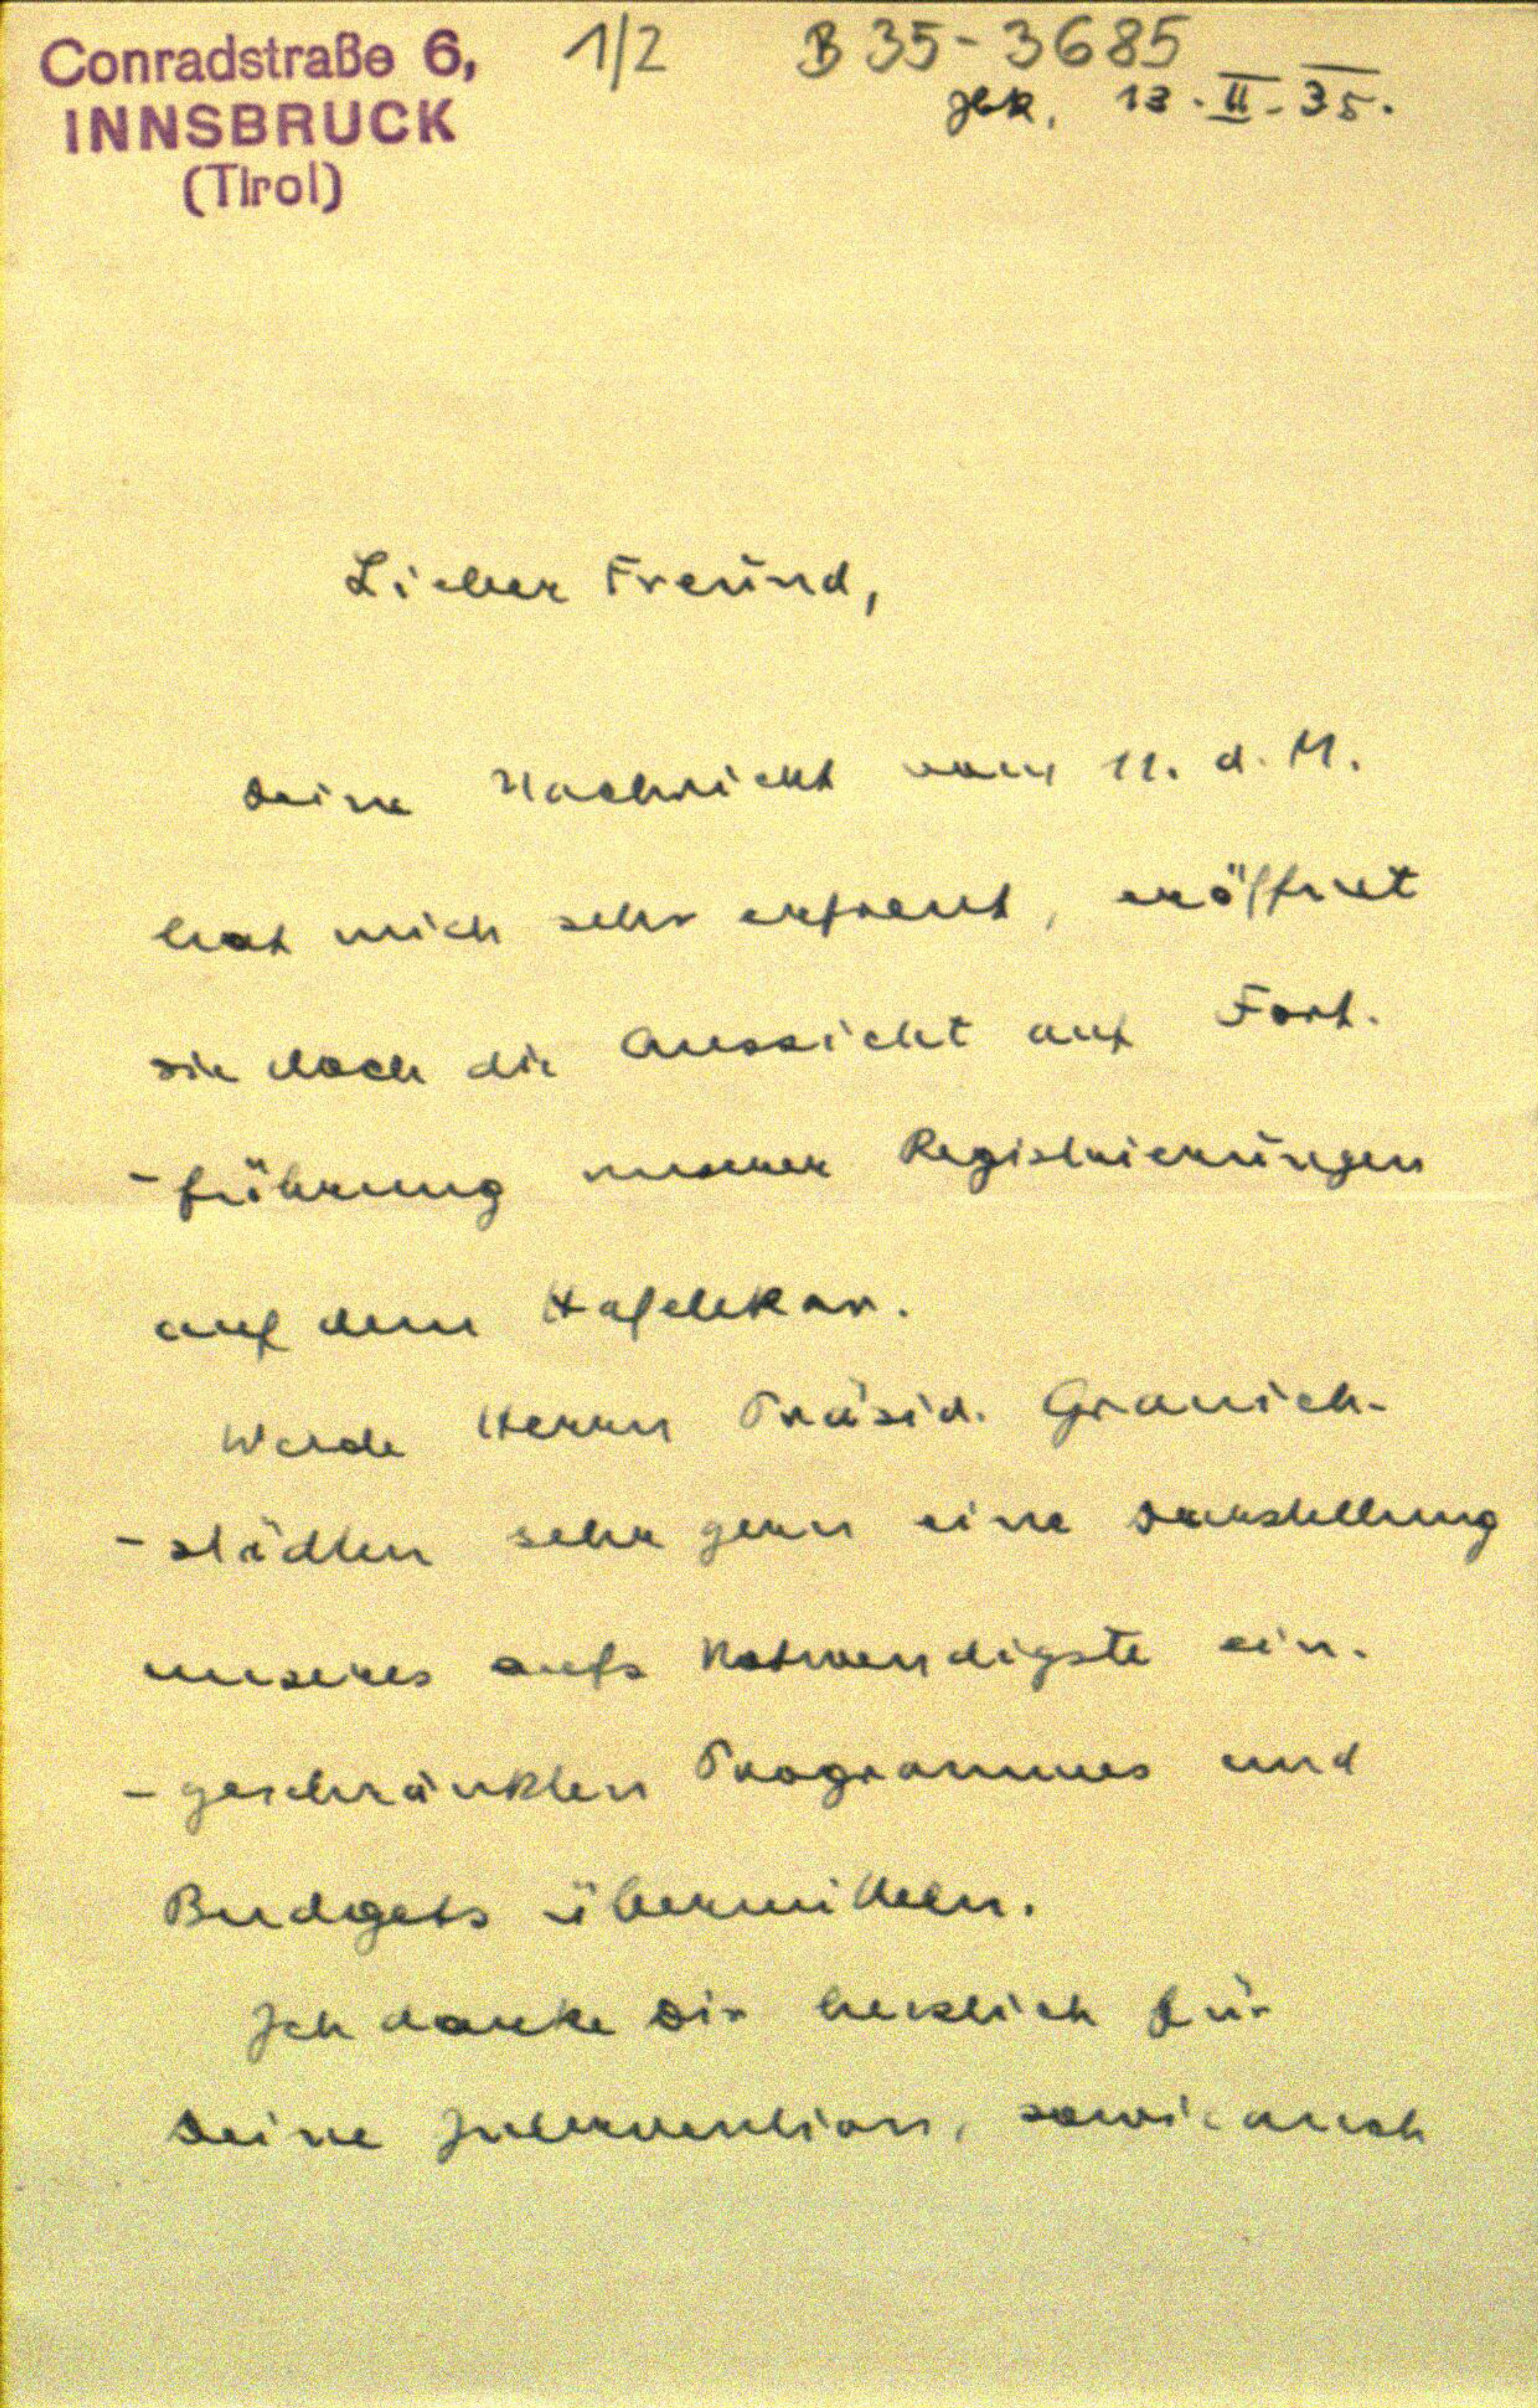 Conradstraße 6,
INNSBRUCK
(Tirol)
1/2 B 35-3685
13.II.35.
Lieber Freund,
Deine Nachricht vom 11. d. M.
hat mich sehr erfreut, eröffnet
sie doch die Aussicht auf Fort-
-führung unserer Registrierungen
auf dem Hafelekar.
Werde Herrn Präsid. Granich-
-städten sehr gern eine Darstellung
unseres aufs Notwendigste ein-
-geschränkten Programmes und
Budgets übermitteln.
Ich danke Dir herzlich für
Deine Intervention, sowie auch